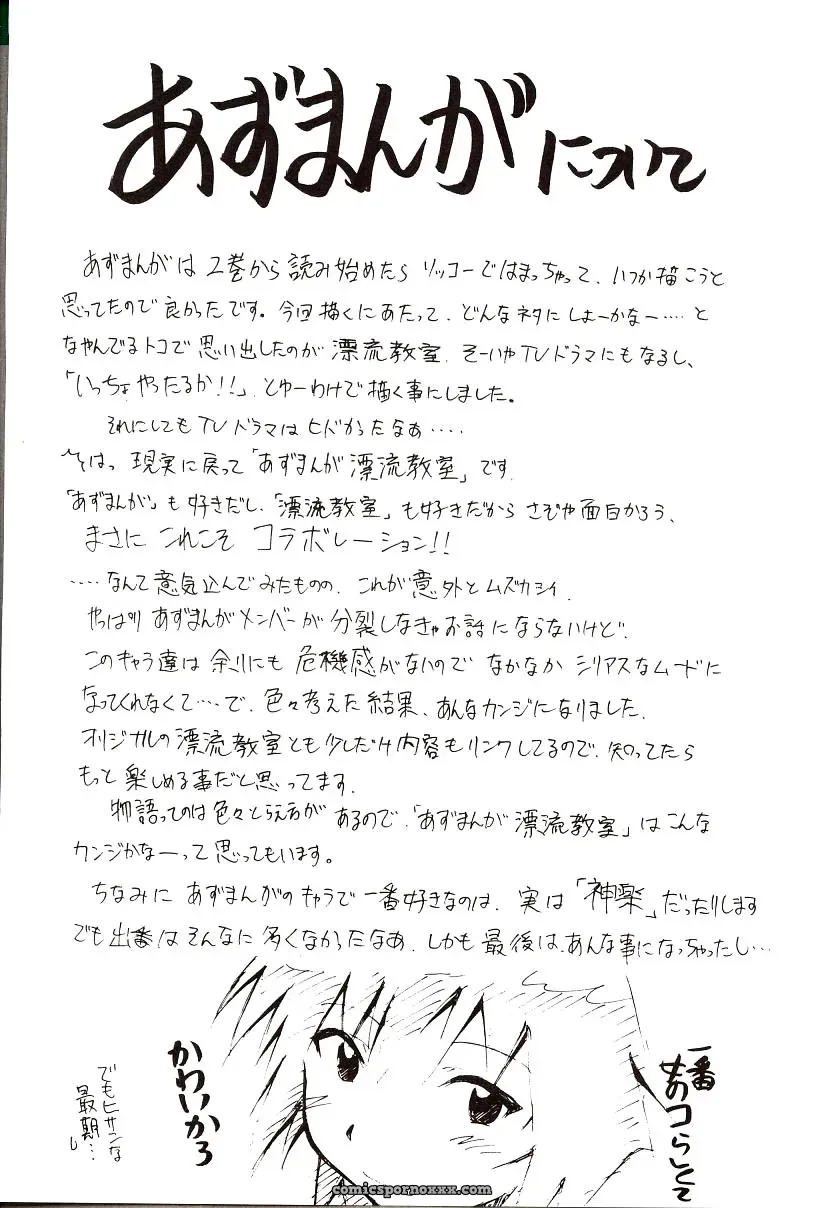 あずまんがについて
あずまんがは2巻から読み始めたらソッコーではまっちゃって、いつか描こうと
思ってたので良かったです。今回描くにあたって、どんなネタにしよーかなー……と
なやんでるトコで思い出したのが漂流教室、そーいやTVドラマにもなるし、
「いっちょやったるか!!」とゆーわけで描く事にしました。
それにしてもTVドラマはヒドかったなぁ……
現実に戻って「あずまんが漂流教室」です
「あずまんが」も好きだし、「漂流教室」も好きだからさぞや面白かろう、
まさにこれこそコラボレーション!!
……なんて意気込んでみたものの、これが意外とムズカシイ、
やっぱりあずまんがメンバーが分裂しなきゃお話にならないけど、
このキャラ達は余りにも危機感がないのでなかなかシリアスなムードに
なってくれなくて……で、色々考えた結果、あんなカンジになりました、
オリジナルの漂流教室とも少しだけ内容もリンクしてるので、知ってたら
もっと楽しめる事だと思ってます、
物語ってのは色々とらえ方があるので、「あずまんが漂流教室」はこんな
カンジかなーって思ってもいます。
ちなみにあずまんがのキャラで一番好きなのは、実は「神楽」だったりします
でも出番はそんなに多くなかったなあ、しかも最後は、あんな事になっちゃったし…
一番
オンナのコらしくて
かわいかろ
でもヒサンな
最期…
comicspornoxxx.com